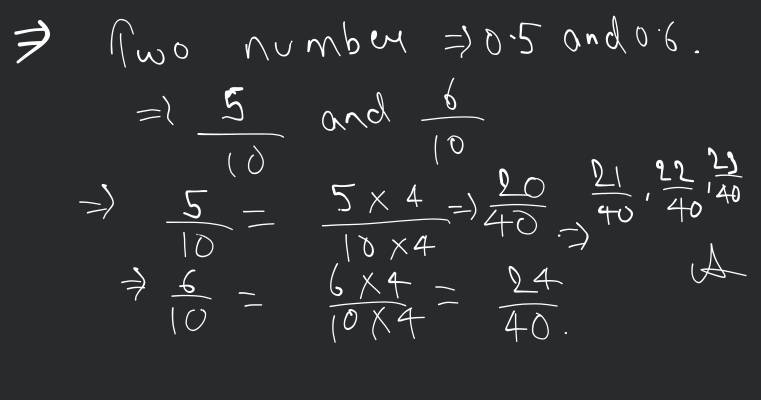 ⇒ Two number ⇒ 0.5 and 0.6.
⇒ 5/10 and 6/10
⇒ 5/10 = 5×4/10×4 ⇒ 20/40 ⇒ 21/40, 22/40, 23/40
⇒ 6/10 = 6×4/10×4 = 24/40.